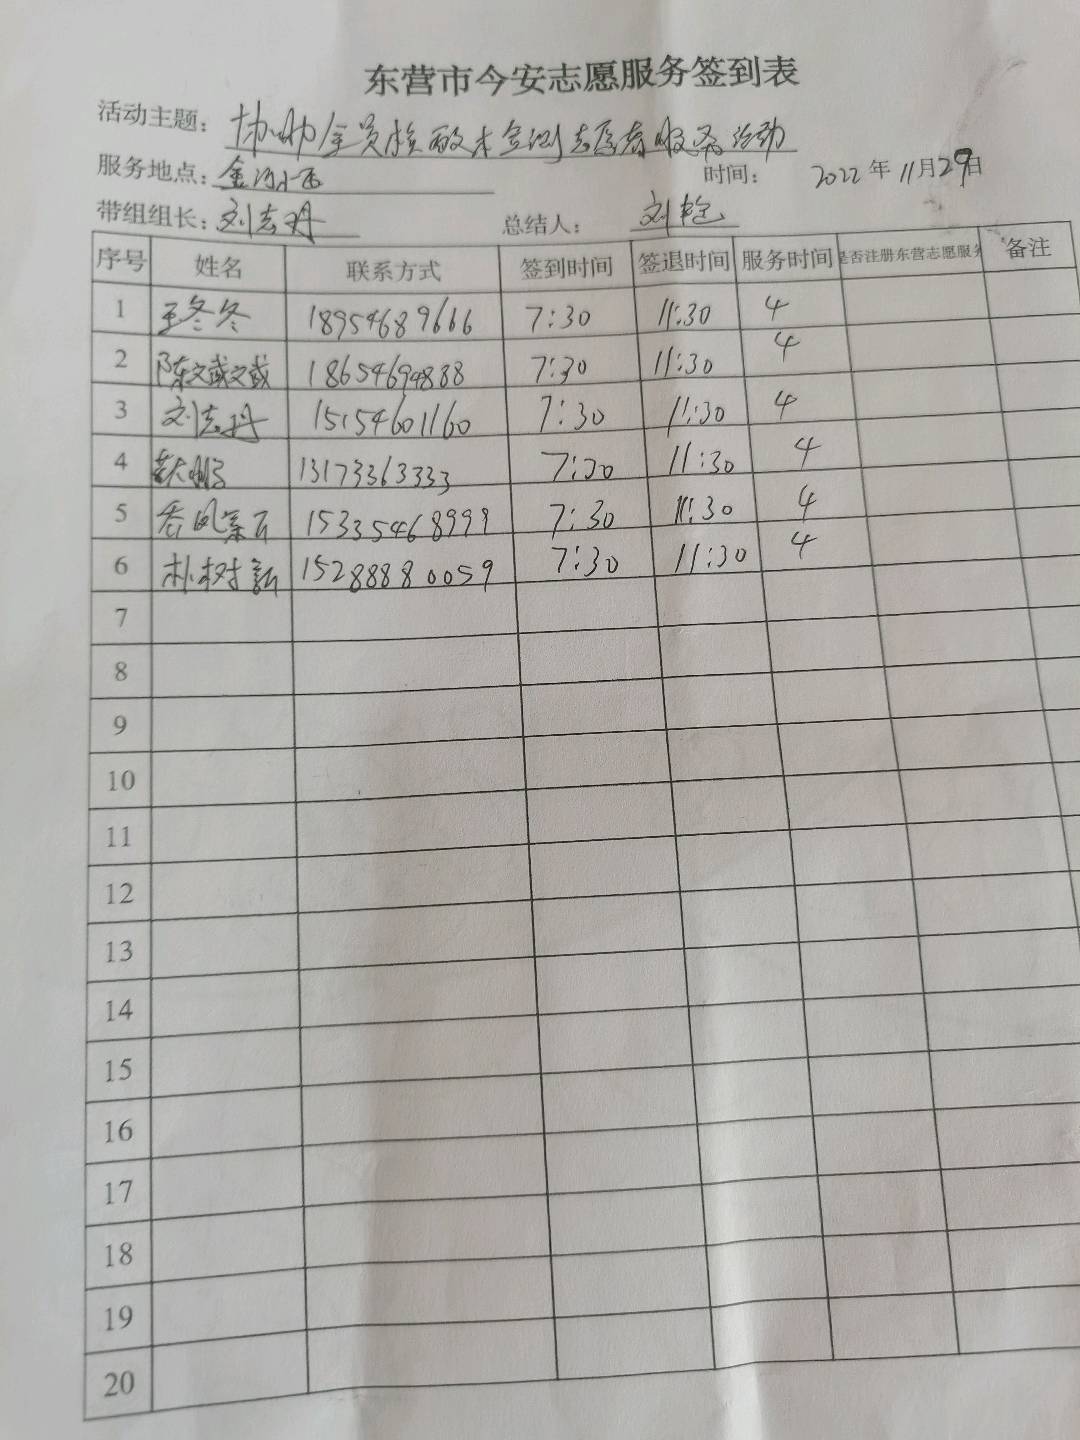 东营市今安志愿服务签到表
活动主题：协助全员核酸检测志愿者服务活动
服务地点：金河小区
时间： 2022年11月29日
带组组长：刘志丹
总结人：刘艳
序号 姓名 联系方式 签到时间 签退时间 服务时间 是否注册东营志愿服务 备注
1 王冬冬 18954689666 7:30 11:30 4
2 陈文戯文戯 18654694888 7:30 11:30 4
3 刘志丹 15154601160 7:30 11:30 4
4 13173363333 7:30 11:30 4
5 15335468999 7:30 11:30 4
6 朴树 15288880059 7:30 11:30 4
7
8
9
10
11
12
13
14
15
16
17
18
19
20